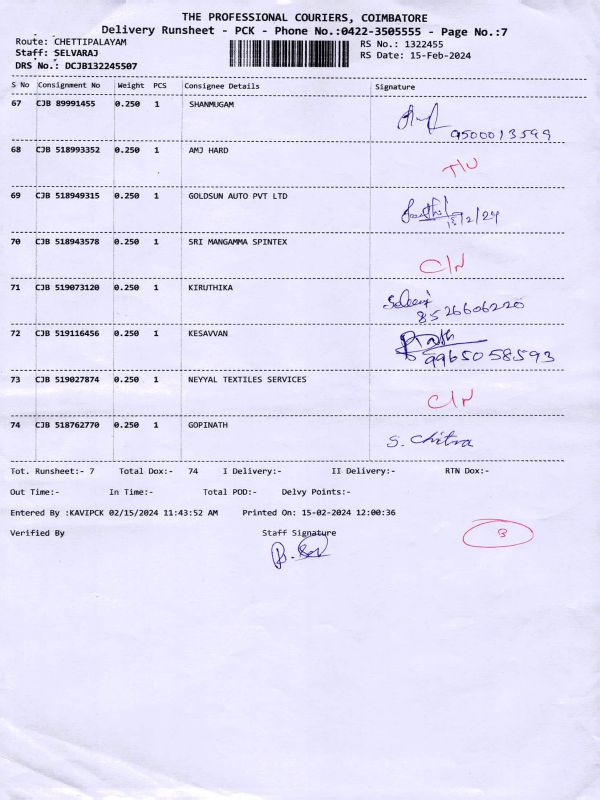 THE PROFESSIONAL COURIERS, COIMBATORE
Delivery Runsheet - PCK - Phone No.:0422-3505555 - Page No.:7
Route: CHETTIPALAYAM RS No.: 1322455
Staff: SELVARAJ RS Date: 15-Feb-2024
DRS No.: DCJB132245507
S No Consignment No Weight PCS Consignee Details Signature
67 CJB 89991455 0.250 1 SHANMUGAM
9500013599
68 CJB 518993352 0.250 1 AMJ HARD
T/U
69 CJB 518949315 0.250 1 GOLDSUN AUTO PVT LTD
15/2/24
70 CJB 518943578 0.250 1 SRI MANGAMMA SPINTEX
C/N
71 CJB 519073120 0.250 1 KIRUTHIKA
8526606220
72 CJB 519116456 0.250 1 KESAVVAN
9965058593
73 CJB 519027874 0.250 1 NEYYAL TEXTILES SERVICES
C/N
74 CJB 518762770 0.250 1 GOPINATH
S. Chitra
Tot. Runsheet:- 7 Total Dox:- 74 I Delivery:- II Delivery:- RTN Dox:-
Out Time:- In Time:- Total POD:- Delvy Points:-
Entered By :KAVIPCK 02/15/2024 11:43:52 AM Printed On: 15-02-2024 12:00:36
Verified By Staff Signature